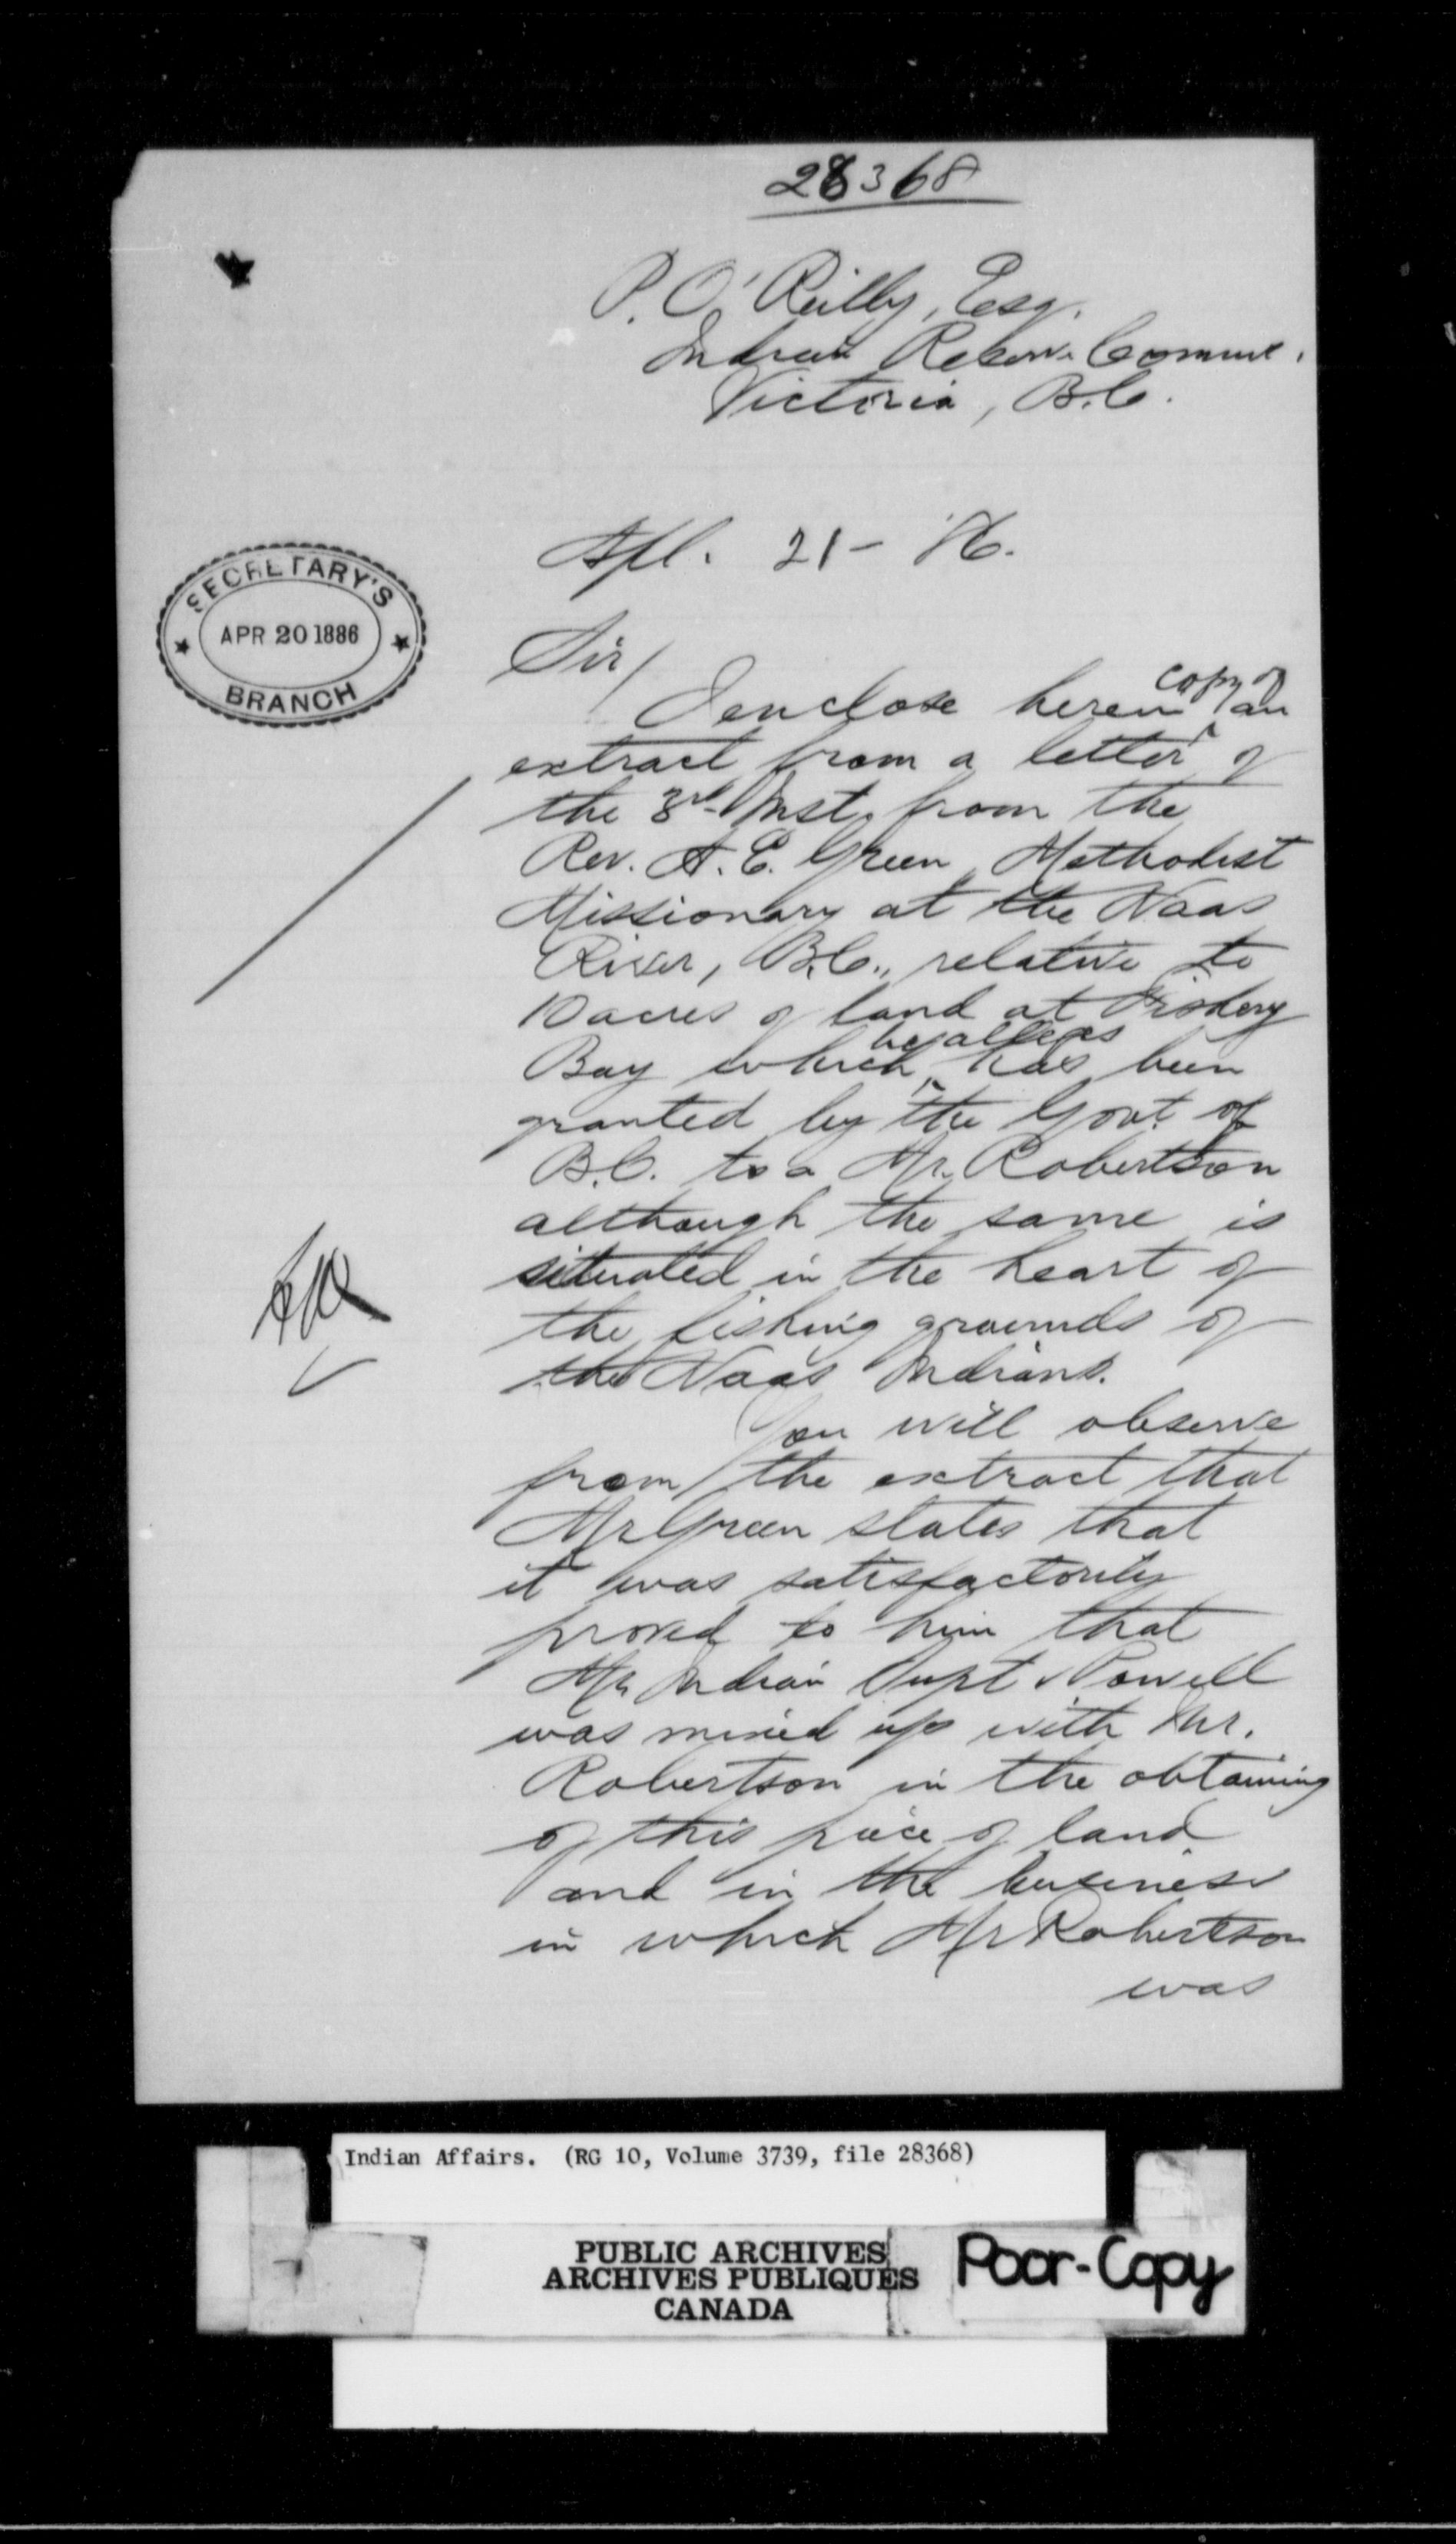 28368
P. O'Reilly, Esq.
Indian Reserve Commr.
Victoria, B.C.
Apl. 21 - 86.
SECRETARY'S
APR 20 1886
BRANCH
Sir/
I enclose herein copy of an
extract from a letter of
the 3rd Inst. from the
Rev. A. E. Green, Methodist
Missionary at the Naas
River, B.C., relative to
10 acres of land at Fishery
Bay which he alleges has been
granted by the Govt. of
B.C. to a Mr. Robertson
although the same is
situated in the heart of
the fishing grounds of
the Naas Indians.
You will observe
from the extract that
Mr Green states that
it was satisfactorily
proved to him that
Mr Indian Supt Powell
was mixed up with Mr.
Robertson in the obtaining
of this piece of land
and in the business
in which Mr Robertson
was
Indian Affairs. (RG 10, Volume 3739, file 28368)
PUBLIC ARCHIVES
ARCHIVES PUBLIQUES
CANADA
Poor-Copy